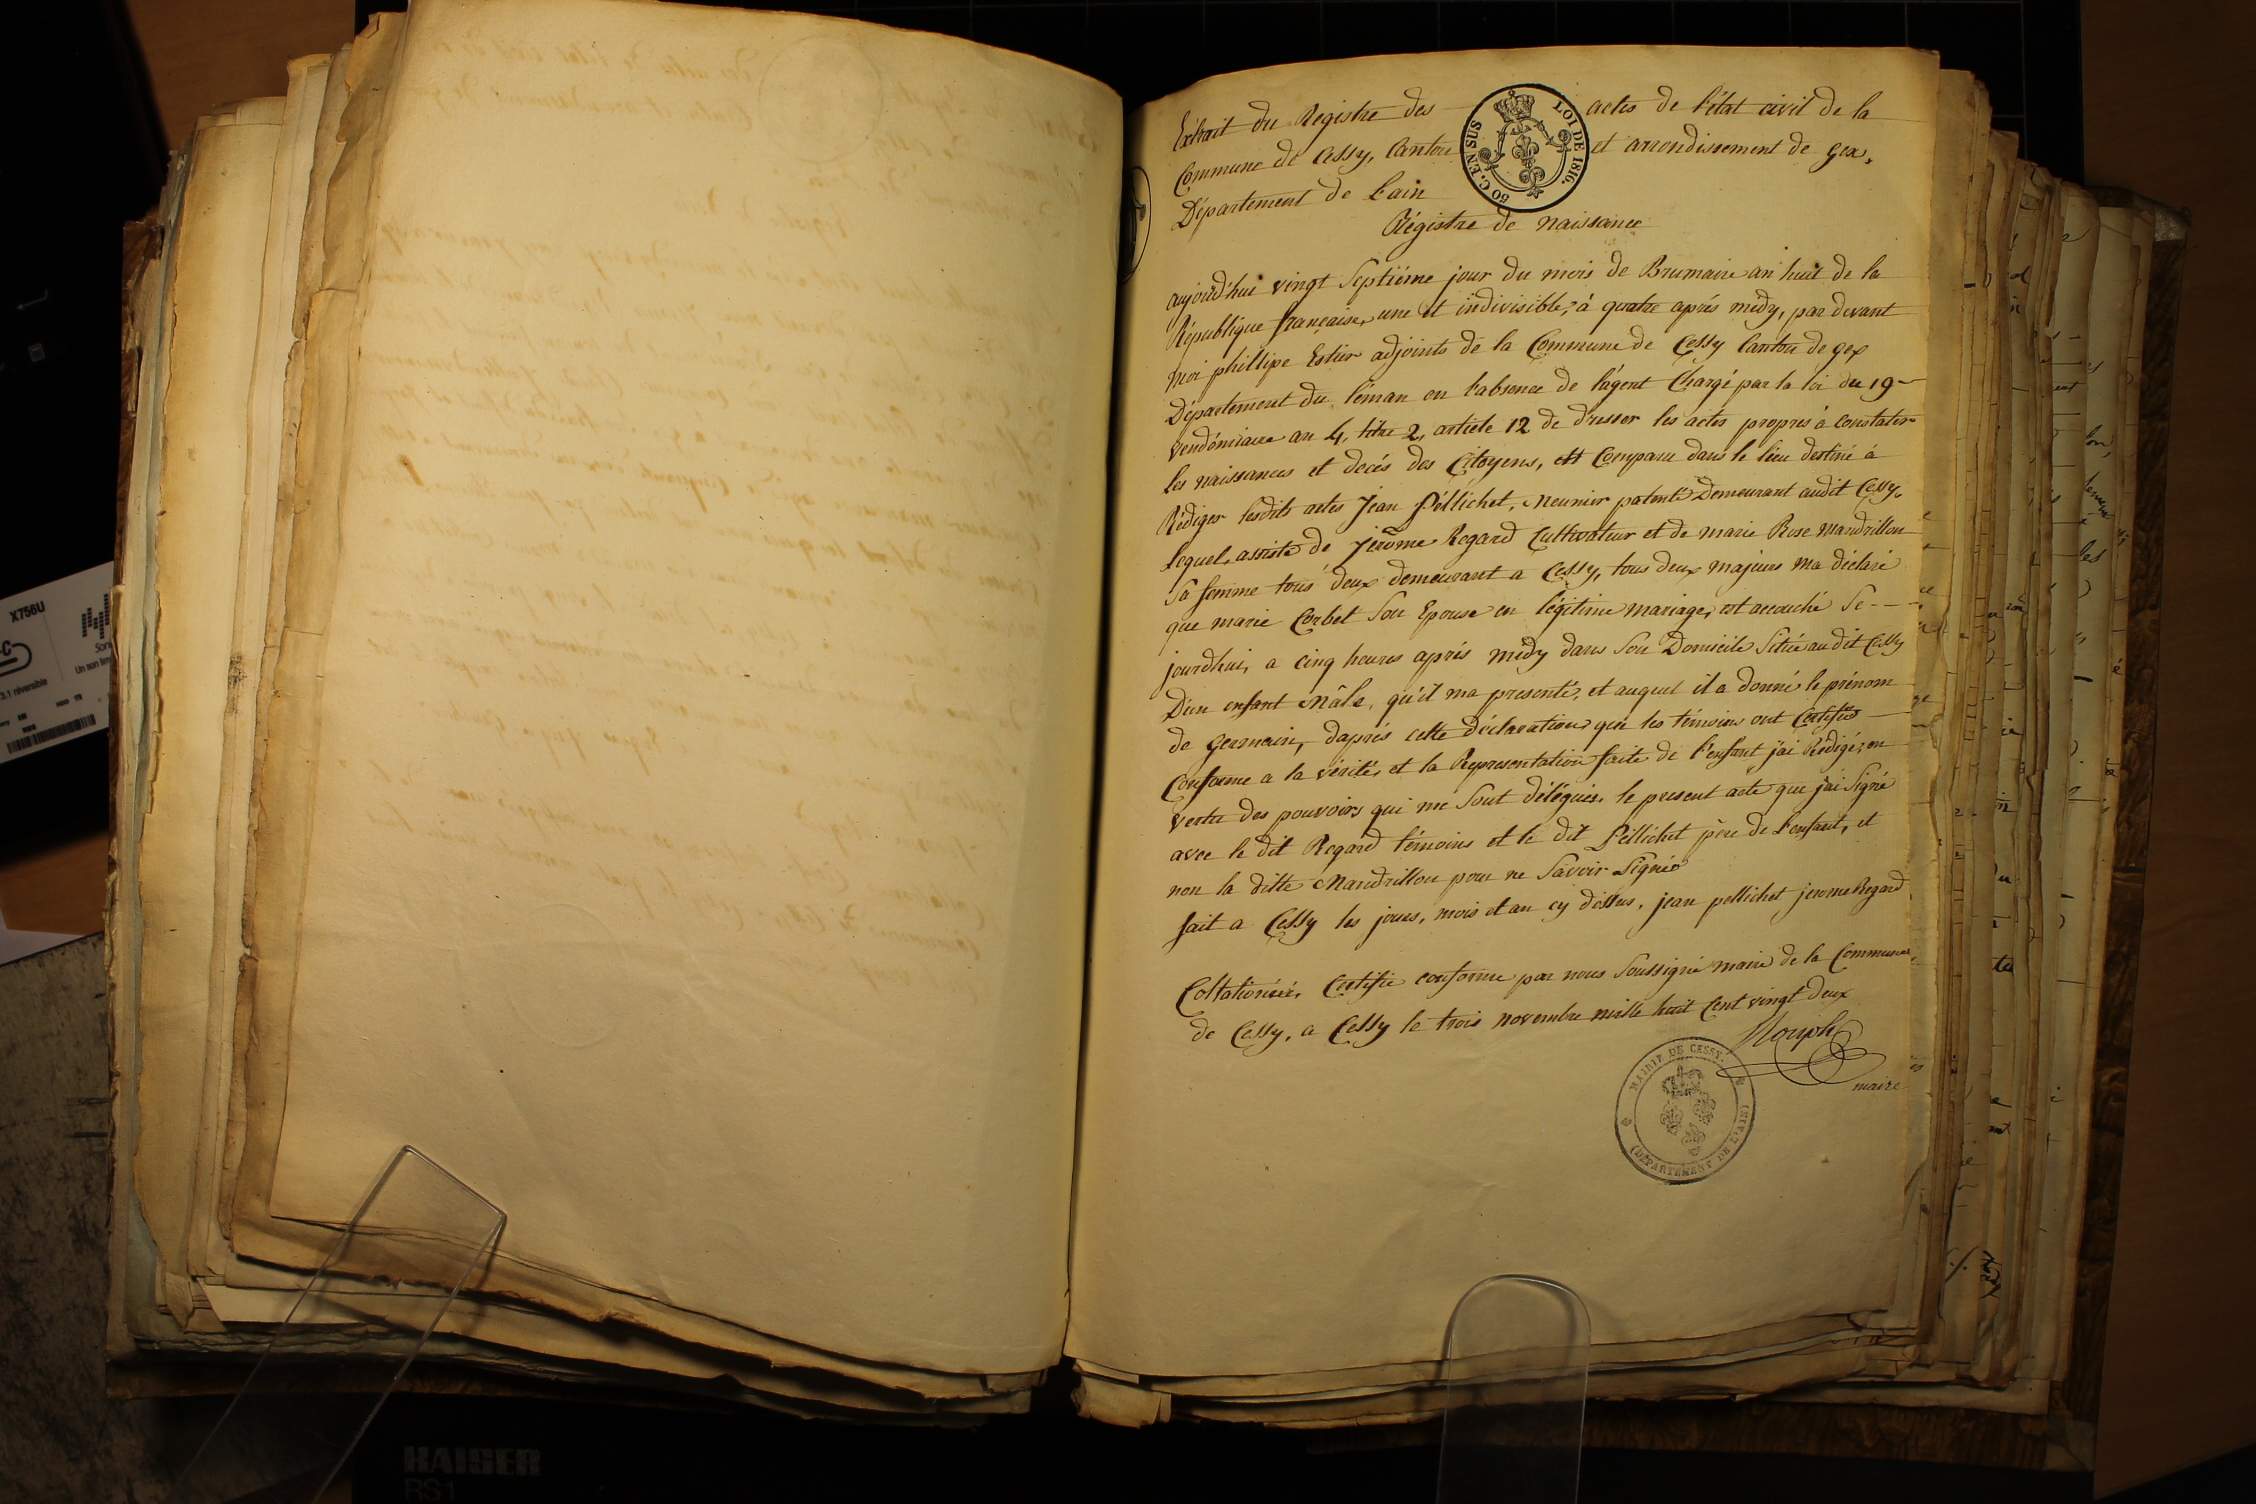 Extrait du Régistre des actes de l'état civil de la
Commune de Cessy, Canton et arrondissement de gex,
Département de l'ain
50 C. EN SUS
LOI DE 1816.
Régistre de naissance
aujourd'hui vingt Septiéme jour du mois de Brumaire an huit de la
République française, une et indivisible, à quatre aprés midy, par devant
moi phillipe Estier adjoints de la Commune de Cessy Canton de gex
Département du léman en l'absence de l'agent Chargé par la loi du 19
vendémiaire an 4, titre 2, article 12 de dresser les actes propres à constater
les naissances et decés des Citoyens, est Comparu dans le lieu destiné à
Rédiger lesdits actes Jean Péllichet, Meunier patenté Demeurant audit Cessy,
lequel, assisté de Jérôme Regard Cultivateur et de marie Rose Mandrillon
Sa femme tous deux demeurant a Cessy, tous deux majeurs ma déclaré
que marie Corbet Son Epouse en légitime mariage, est accouché Se - - -
jourdhui, a cinq heures aprés midy dans Son Domicile Situé audit Cessy
D'un enfant Mâle, qu'il ma presenté, et auquel il a donné le prénom
de germain, daprés cette déclaration que les témoins ont Certifié
Conforme a la vérité, et la Representation faite de l'enfant j'ai Rédigé, en
vertu des pouvoirs qui me Sont délégués, le present acte que j'ai Signé
avec le dit Regard témoins et le dit Péllichet père de l'enfant, et
non la ditte Mandrillon pour ne Savoir Signé
fait a Cessy les jours, mois et an cy dessus, jean pellichet jerome Regard
Collationné, Certifie conforme par nous Soussigné maire de la Commune
de Cessy, a Cessy le trois novembre mille huit Cent vingt deux
maire
MAIRIE DE CESSY.
(DÉPARTEMENT DE L'AIN)
X756U
3.1 réversible
KAISER
RS1